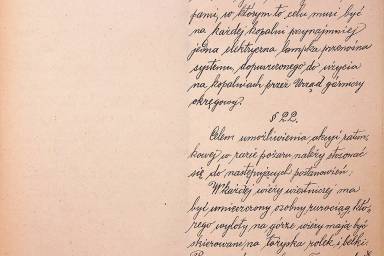 pami, w którym to celu musi być
na każdej kopalni przynajmniej
jedna elektryczna lampka przenośna
systemu, dopuszczonego do użycia
na kopalniach przez Urząd górniczy
okręgowy.
§ 22.
Celem umożliwienia akcyi ratun-
kowej w razie pożaru należy stosować
się do następujących postanowień:
W każdej wieży wiertniczej ma
być umieszczony osobny rurociąg, któ-
rego wyloty na górze wieży mają być
skierowane na łożyska rolek i belki.